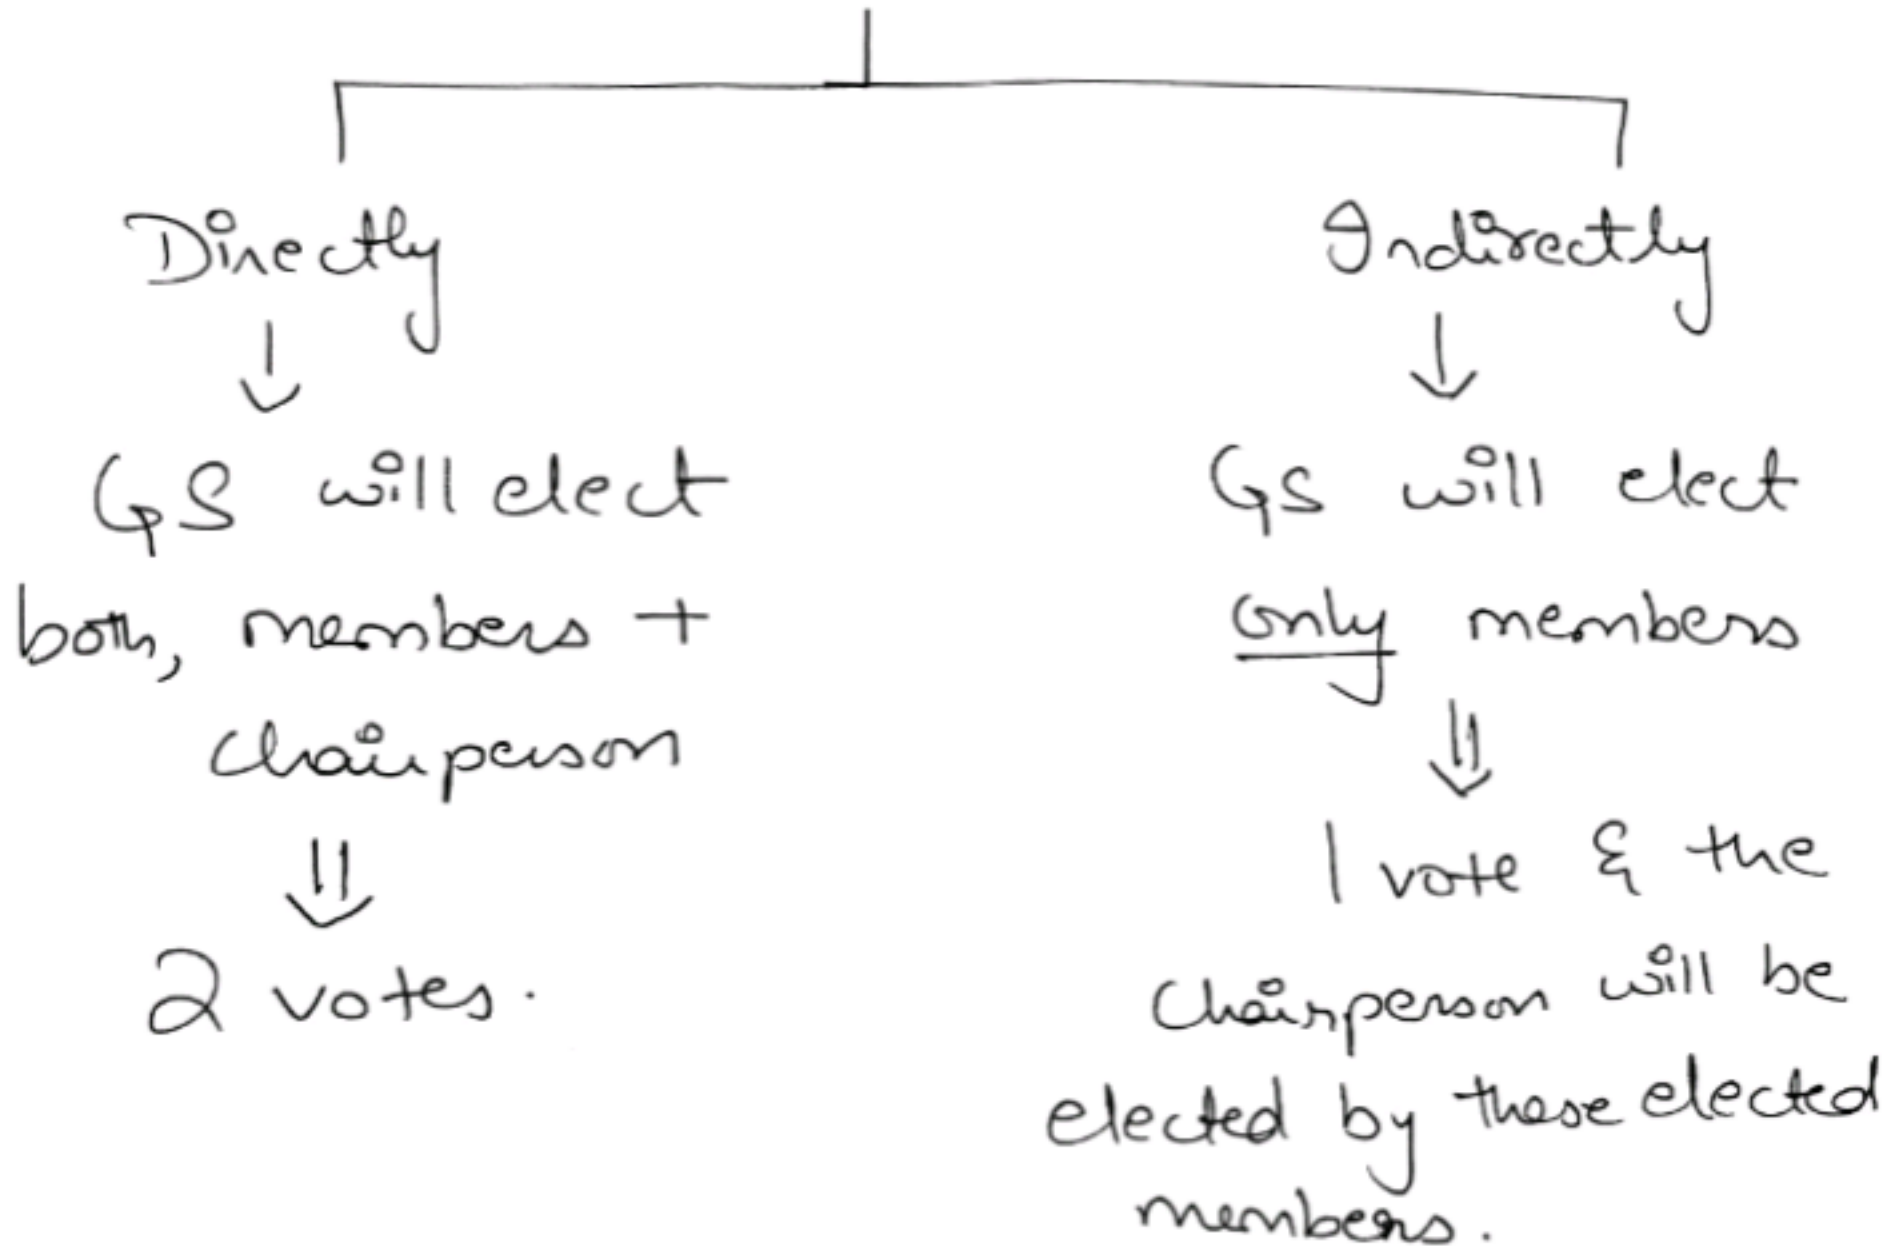 Directly
GS will elect
both, members +
chairperson
2 votes.
Indirectly
GS will elect
only members
1 vote & the
Chairperson will be
elected by these elected
members.